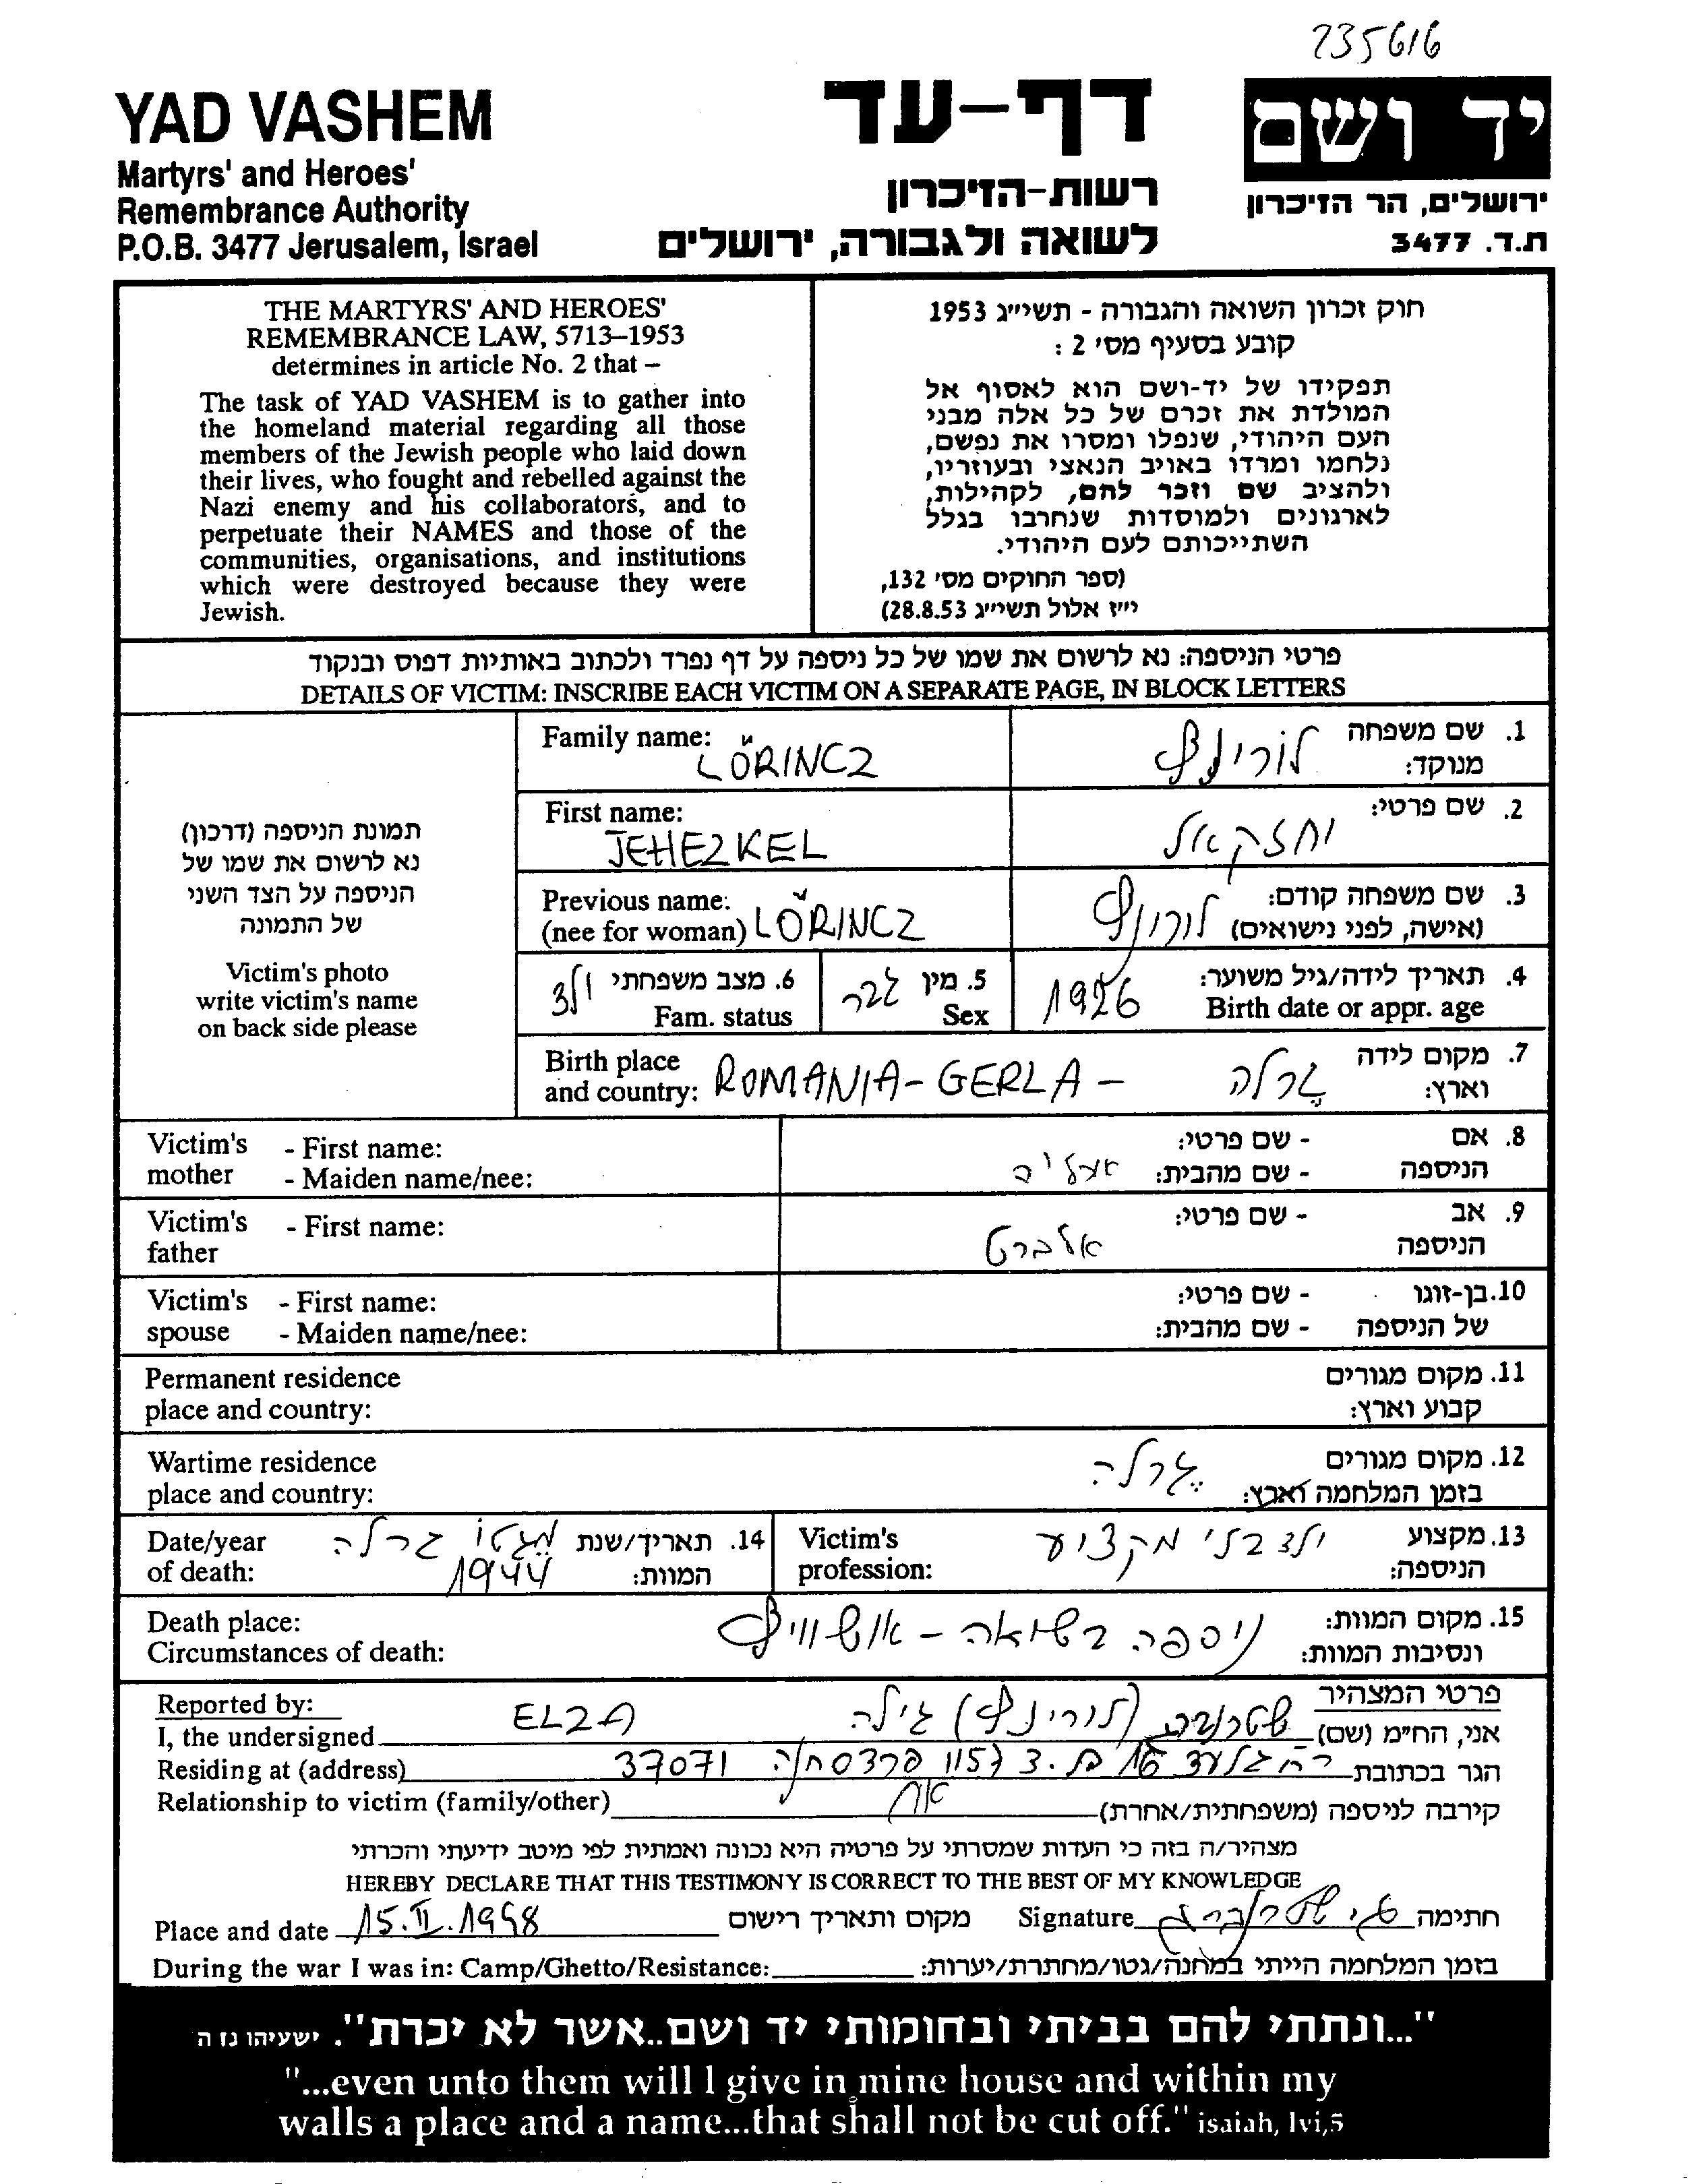 235616
YAD VASHEM
Martyrs' and Heroes'
Remembrance Authority
P.O.B. 3477 Jerusalem, Israel
דף-עד
רשות-הזיכרון
לשואה ולגבורה, ירושלים
יד ושם
ירושלים, הר הזיכרון
ת.ד. 3477
THE MARTYRS' AND HEROES'
REMEMBRANCE LAW, 5713–1953
determines in article No. 2 that –
The task of YAD VASHEM is to gather into
the homeland material regarding all those
members of the Jewish people who laid down
their lives, who fought and rebelled against the
Nazi enemy and his collaborators, and to
perpetuate their NAMES and those of the
communities, organisations, and institutions
which were destroyed because they were
Jewish.
חוק זכרון השואה והגבורה - תשי״ג 1953
קובע בסעיף מס' 2 :
תפקידו של יד-ושם הוא לאסוף אל
המולדת את זכרם של כל אלה מבני
העם היהודי, שנפלו ומסרו את נפשם,
נלחמו ומרדו באויב הנאצי ובעוזריו,
ולהציב שם וזכר להם, לקהילות,
לארגונים ולמוסדות שנחרבו בגלל
השתייכותם לעם היהודי.
(ספר החוקים מס' 132,
י״ז אלול תשי״ג 28.8.53)
פרטי הניספה: נא לרשום את שמו של כל ניספה על דף נפרד ולכתוב באותיות דפוס ובנקוד
DETAILS OF VICTIM: INSCRIBE EACH VICTIM ON A SEPARATE PAGE, IN BLOCK LETTERS
תמונת הניספה (דרכון)
נא לרשום את שמו של
הניספה על הצד השני
של התמונה
Victim's photo
write victim's name
on back side please
Family name: LŐRINCZ לורינץ 1. שם משפחה
מנוקד:
First name: JEHEZKEL יחזקאל 2. שם פרטי:
Previous name: LŐRINCZ לורינץ 3. שם משפחה קודם:
(nee for woman) (אישה, לפני נישואים)
6. מצב משפחתי ילד 5. מין זכר 1926 4. תאריך לידה/גיל משוער:
Fam. status Sex Birth date or appr. age
Birth place ROMANIA - GERLA - גרלה 7. מקום לידה
and country: וארץ:
Victim's - First name: - שם פרטי: 8. אם
mother - Maiden name/nee: - שם מהבית: הניספה
Victim's - First name: אלברט - שם פרטי: 9. אב
father הניספה
Victim's - First name: - שם פרטי: 10. בן-זוגו
spouse - Maiden name/nee: - שם מהבית: של הניספה
Permanent residence 11. מקום מגורים
place and country: קבוע וארץ:
Wartime residence גרלה 12. מקום מגורים
place and country: בזמן המלחמה וארץ:
Date/year מגטו גרלה 14. תאריך/שנת
of death: 1944 המוות:
Victim's ילד בלי מקצוע 13. מקצוע
profession: הניספה:
Death place: ניספה בשואה - אושוויץ 15. מקום המוות:
Circumstances of death: ונסיבות המוות:
Reported by: פרטי המצהיר
I, the undersigned ELZA (לורינץ) גילה אני, הח״מ (שם)
Residing at (address) 37071 פרדס חנה הגר בכתובת
Relationship to victim (family/other) אח קירבה לניספה (משפחתית/אחרת)
מצהיר/ה בזה כי העדות שמסרתי על פרטיה היא נכונה ואמתית לפי מיטב ידיעתי והכרתי
HEREBY DECLARE THAT THIS TESTIMONY IS CORRECT TO THE BEST OF MY KNOWLEDGE
Place and date 15.II.1998 מקום ותאריך רישום Signature חתימה
During the war I was in: Camp/Ghetto/Resistance: בזמן המלחמה הייתי במחנה/גטו/מחתרת/יערות:
"...ונתתי להם בביתי ובחומותי יד ושם..אשר לא יכרת". ישעיהו נז ה
"...even unto them will I give in mine house and within my
walls a place and a name...that shall not be cut off." isaiah, lvi,5